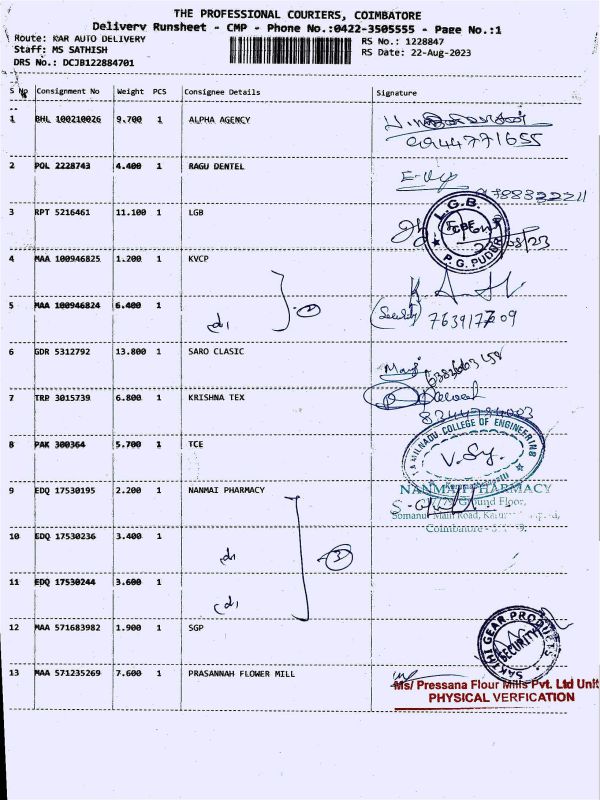 THE PROFESSIONAL COURIERS, COIMBATORE
Delivery Runsheet - CMP - Phone No.:0422-3505555 - Page No.:1
Route: KAR AUTO DELIVERY
Staff: MS SATHISH
DRS No.: DCJB122884701
RS No.: 1228847
RS Date: 22-Aug-2023
S No Consignment No Weight PCS Consignee Details Signature
1 BHL 100210026 9.700 1 ALPHA AGENCY
9944771655
2 POL 2228743 4.400 1 RAGU DENTEL
9788322211
3 RPT 5216461 11.100 1 LGB
L.G.B. CBE P.G. PUDUR
4 MAA 100946825 1.200 1 KVCP
5 MAA 100946824 6.400 1
d1 2
7639177209
6 GDR 5312792 13.800 1 SARO CLASIC
7 TRP 3015739 6.800 1 KRISHNA TEX
8 PAK 300364 5.700 1 TCE
TAMILNADU COLLEGE OF ENGINEERING
V.Sy.
9 EDQ 17530195 2.200 1 NANMAI PHARMACY
NANMAI PHARMACY
Ground Floor,
Main Road,
Coimbatore -
10 EDQ 17530236 3.400 1
d1 3
11 EDQ 17530244 3.600 1
d1
12 MAA 571683982 1.900 1 SGP
SAKTHI GEAR PRODUCTS SECURITY
13 MAA 571235269 7.600 1 PRASANNAH FLOWER MILL
Ms/ Pressana Flour Mills Pvt. Ltd Unit
PHYSICAL VERFICATION